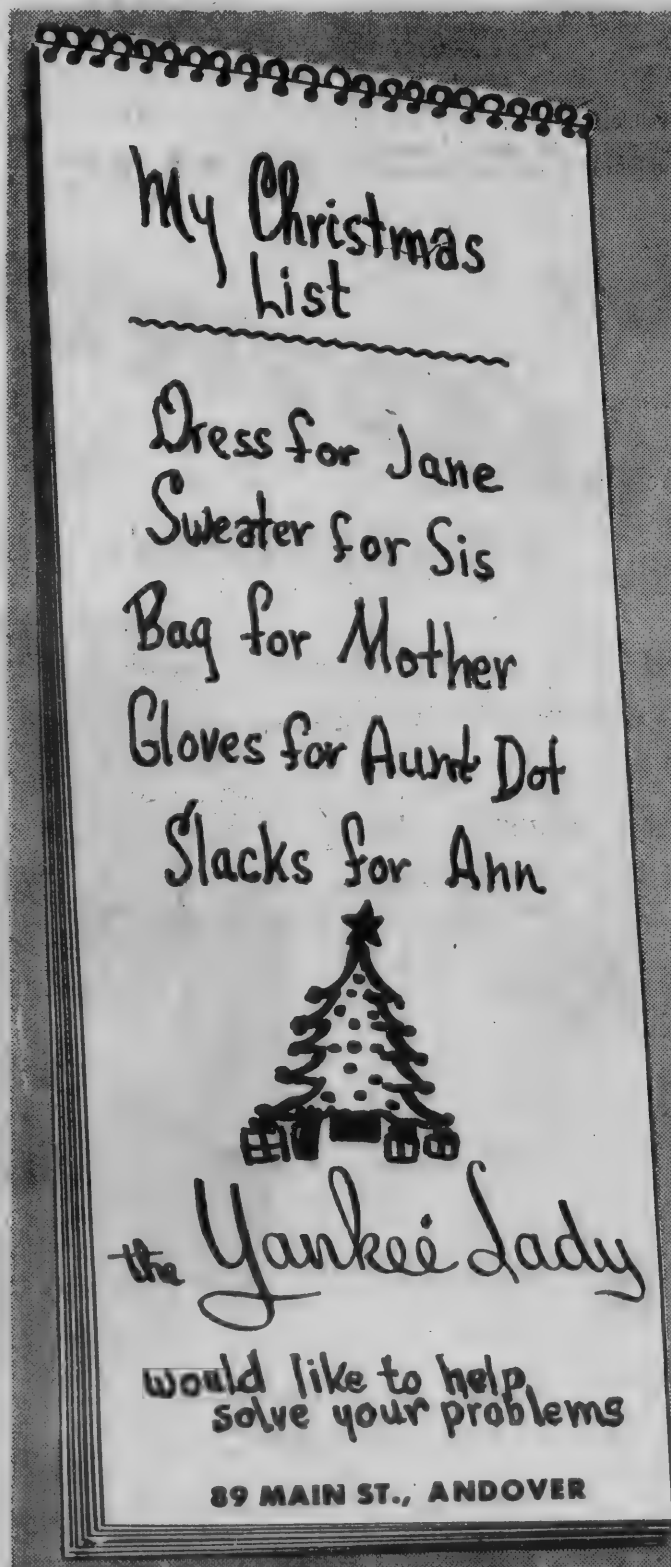 My Christmas
List
Dress for Jane
Sweater for Sis
Bag for Mother
Gloves for Aunt Dot
Slacks for Ann
the Yankee Lady
would like to help
solve your problems
89 MAIN ST., ANDOVER